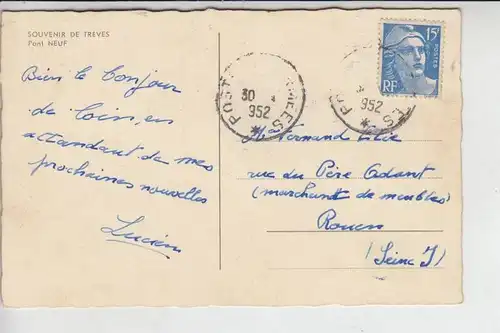 SOUVENIR DE TREVES
Pont NEUF
Bien le bonjour
de loin, en
attendant de mes
prochaines nouvelles
Lucien
15F
POSTES
RF
30
952
952
Fernand
rue du Père Adam
(marchand de meubles)
Rouen
(Seine I)